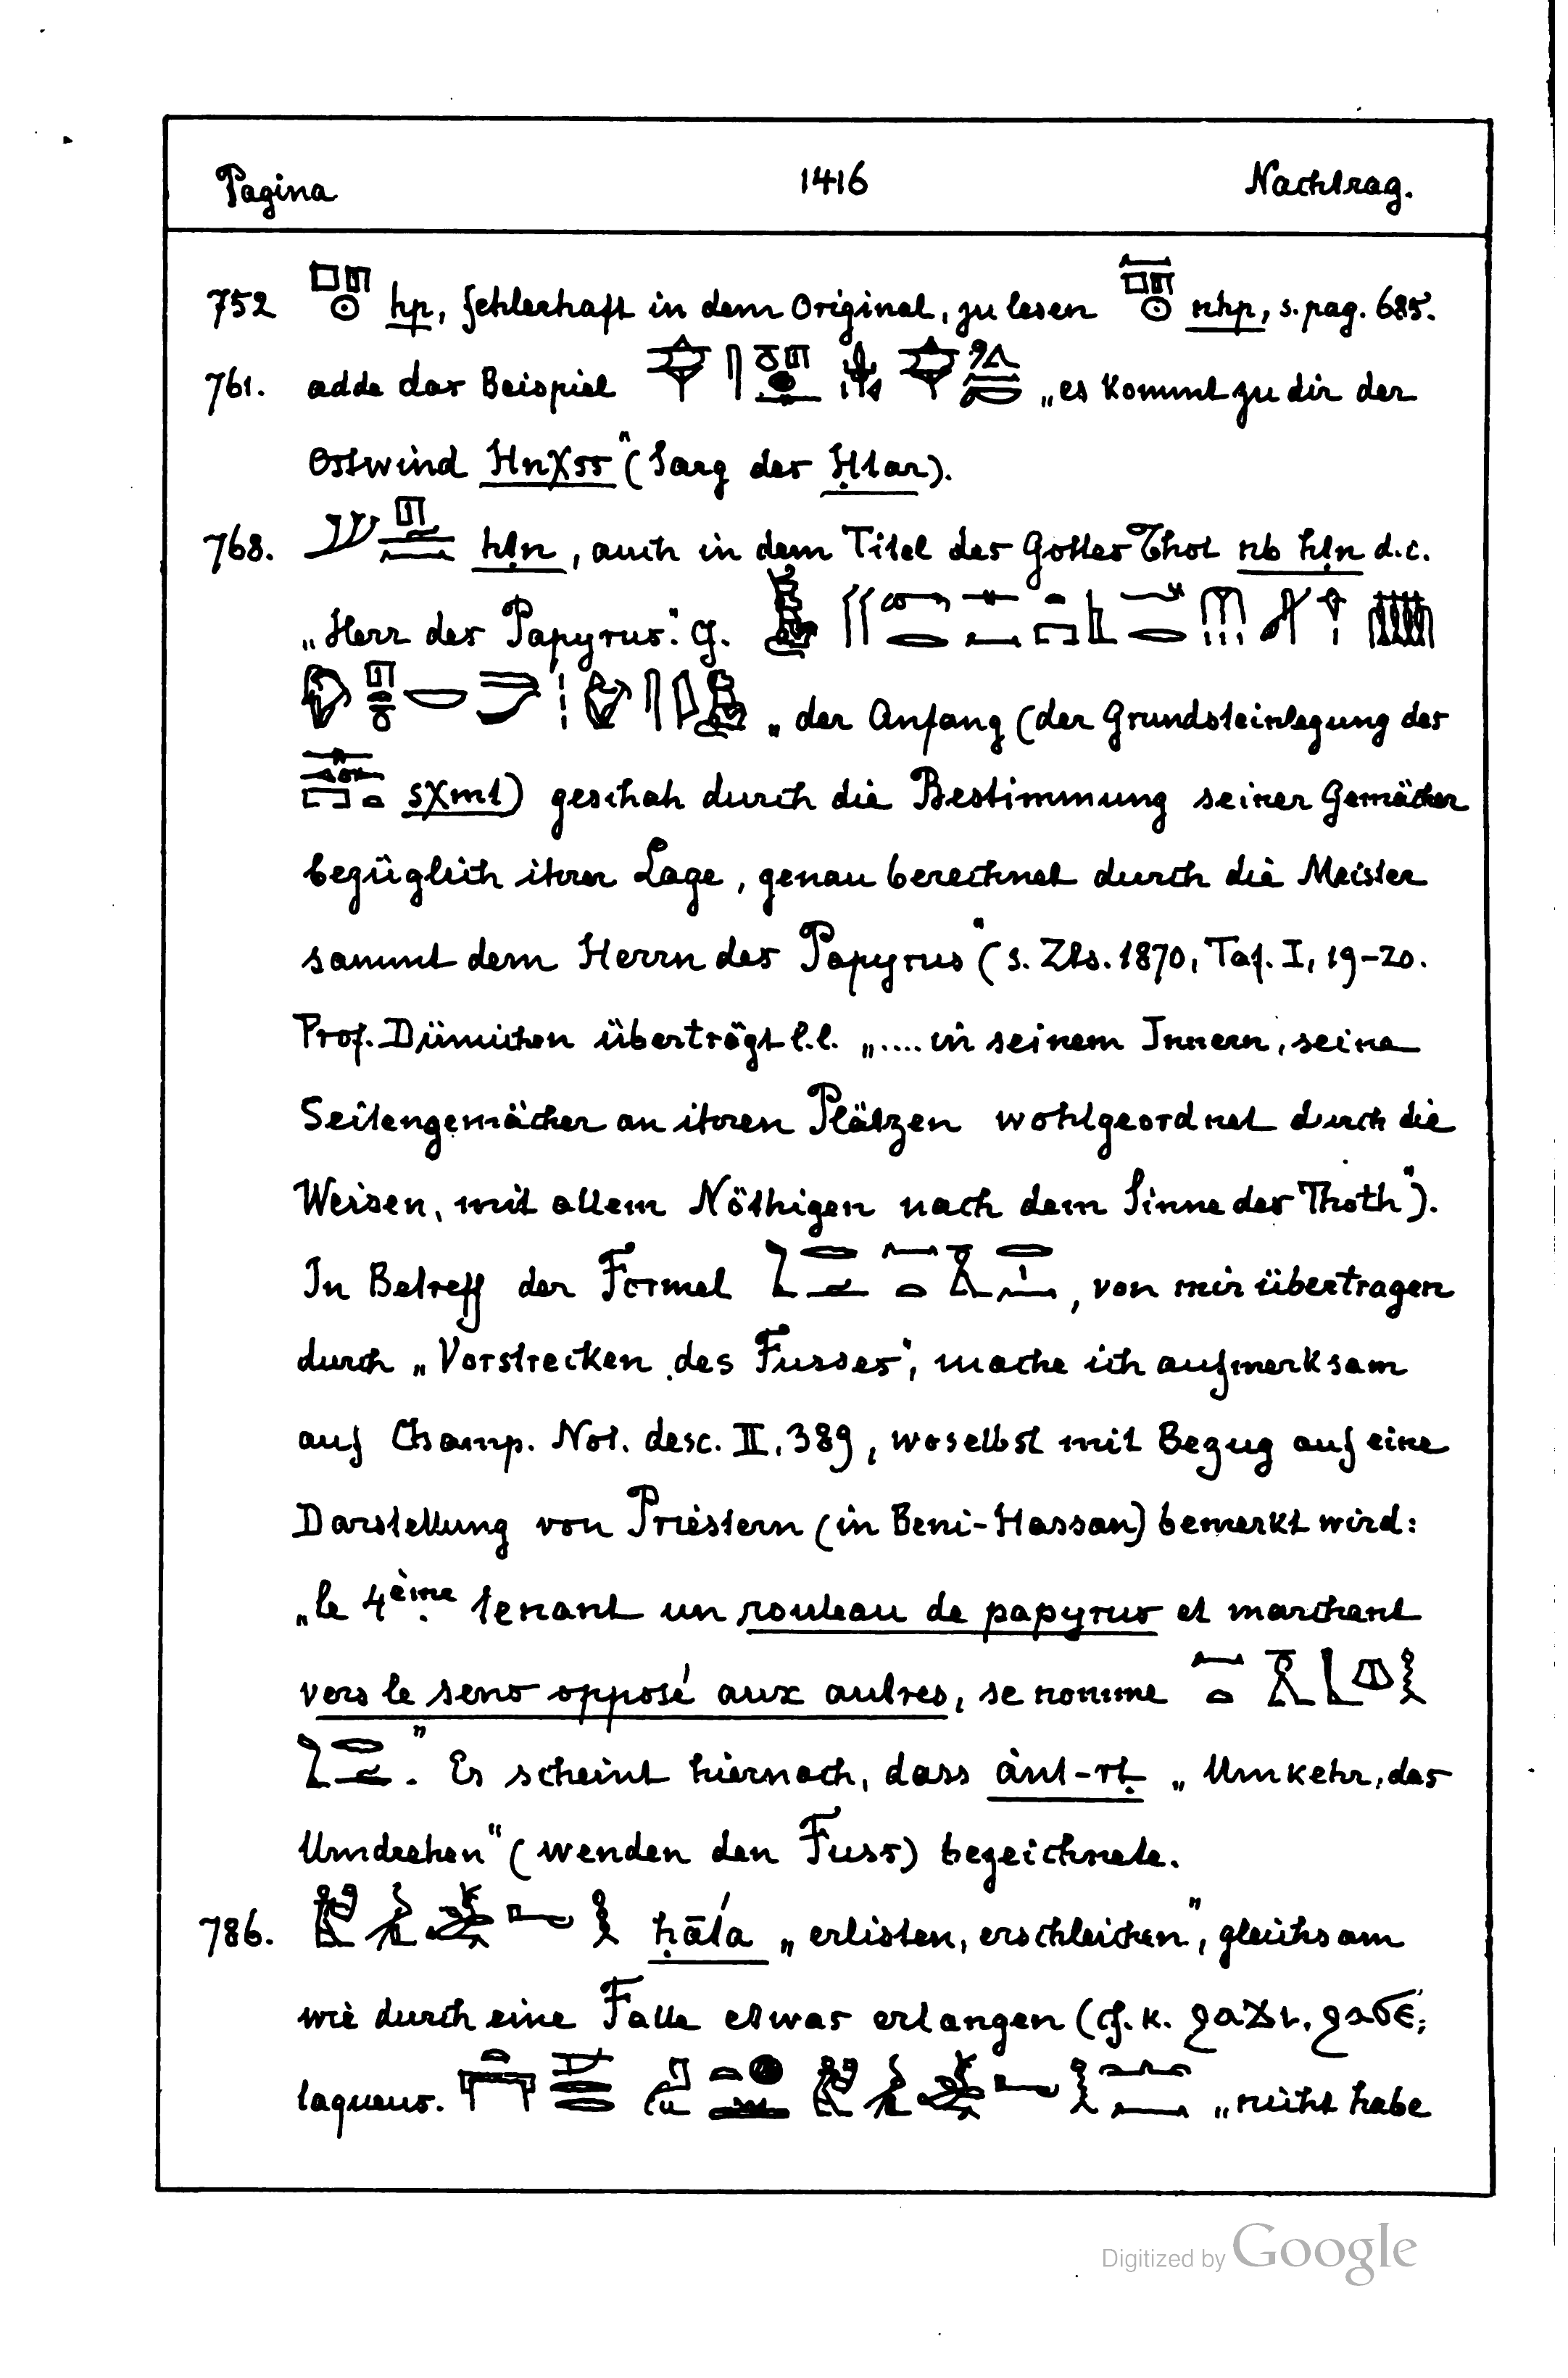 Pagina 1416 Nachtrag.
752 hp, fehlerhaft in dem Original, zu lesen nhp, s. pag. 685.
761. adde das Beispiel „es kommt zu dir der
Ostwind Hnχss“ (Sarg des Ḥtar).
768. hṭn, auch in dem Titel des Gottes Thot nb hṭn d.i.
„Herr des Papyrus“. Cf.
„der Anfang (der Grundsteinlegung des
sχmt) geschah durch die Bestimmung seiner Gemächer
bezüglich ihrer Lage, genau berechnet durch die Meister
sammt dem Herrn des Papyrus“ (s. Zts. 1870, Taf. I, 19-20.
Prof. Dümichen überträgt l.l. „.... in seinem Innern, seine
Seitengemächer an ihren Plätzen wohlgeordnet durch die
Weisen, mit allem Nöthigen nach dem Sinne des Thoth“).
In Betreff der Formel , von mir übertragen
durch „Vorstrecken des Fusses“, mache ich aufmerksam
auf Champ. Not. desc. II, 389, woselbst mit Bezug auf eine
Darstellung von Priestern (in Beni-Hassan) bemerkt wird:
„le 4ème tenant un rouleau de papyrus et marchant
vers le sens opposé aux autres, se nomme
.” Es scheint hiernach, dass ȧnt-rṭ „Umkehr, das
Umdrehen“ (wenden den Fuss) bezeichnete.
786. ḥāťa „erlisten, erschleichen“, gleichsam
wie durch eine Falle etwas erlangen (cf. k. ϩⲁϫⲓ, ϩⲁϭⲉ,
laqueus. „nicht habe
Digitized by Google